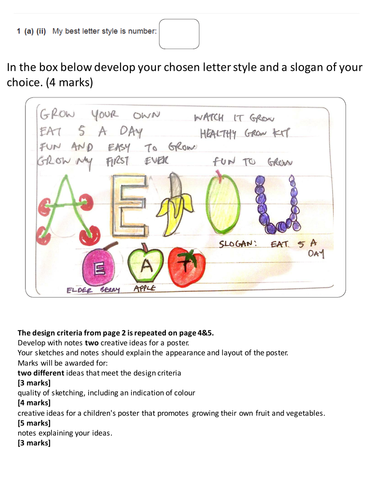 1 (a) (ii) My best letter style is number:
In the box below develop your chosen letter style and a slogan of your
choice. (4 marks)
GROW YOUR OWN
EAT 5 A DAY
FUN AND EASY TO GROW
GROW MY FIRST EVER
WATCH IT GROW
HEALTHY GROW KIT
FUN TO GROW
A E I O U
SLOGAN: EAT 5 A
DAY
E A T
ELDER BERRY APPLE
The design criteria from page 2 is repeated on page 4&5.
Develop with notes two creative ideas for a poster.
Your sketches and notes should explain the appearance and layout of the poster.
Marks will be awarded for:
two different ideas that meet the design criteria
[3 marks]
quality of sketching, including an indication of colour
[4 marks]
creative ideas for a children's poster that promotes growing their own fruit and vegetables.
[5 marks]
notes explaining your ideas.
[3 marks]